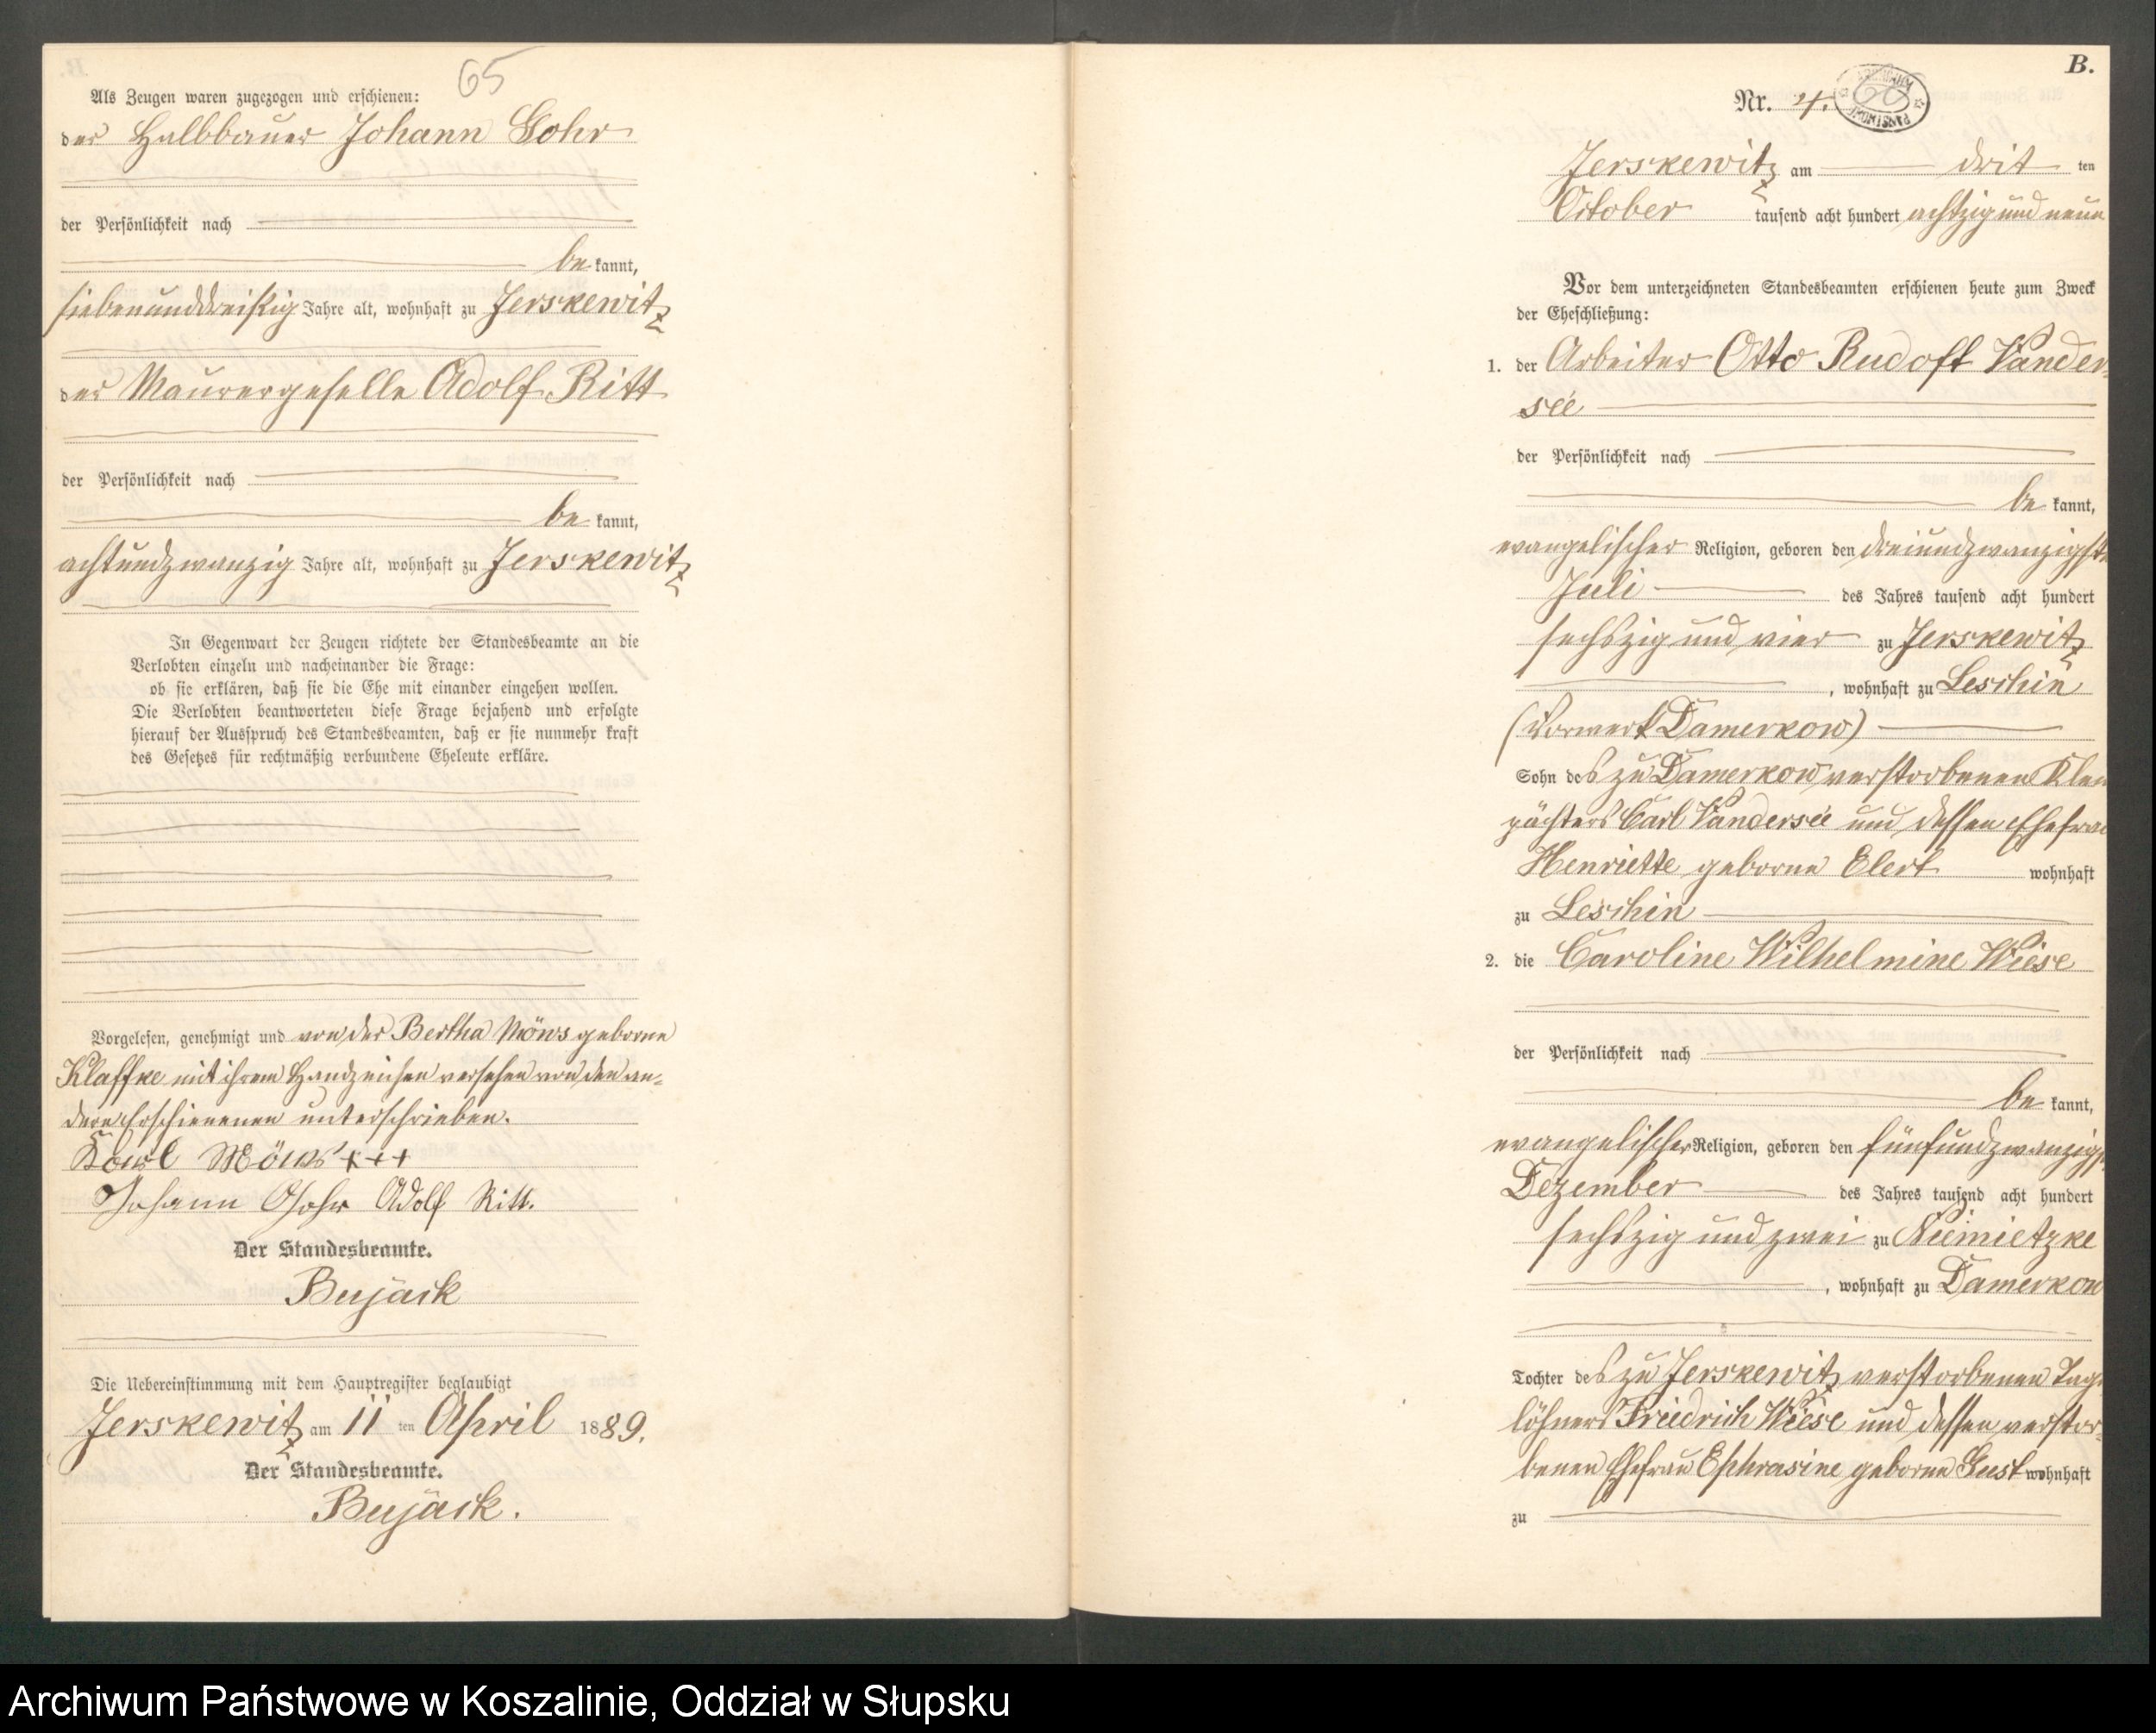 65
Als Zeugen waren zugezogen und erschienen:
der Halbbauer Johann Gohr
der Persönlichkeit nach
be kannt,
siebenunddreißig Jahre alt, wohnhaft zu Jerskewitz
der Maurergeselle Adolf Ritt
der Persönlichkeit nach
be kannt,
achtundzwanzig Jahre alt, wohnhaft zu Jerskewitz
In Gegenwart der Zeugen richtete der Standesbeamte an die
Verlobten einzeln und nacheinander die Frage:
ob sie erklären, daß sie die Ehe mit einander eingehen wollen.
Die Verlobten beantworteten diese Frage bejahend und erfolgte
hierauf der Ausspruch des Standesbeamten, daß er sie nunmehr kraft
des Gesetzes für rechtmäßig verbundene Eheleute erkläre.
Vorgelesen, genehmigt und von der Bertha Möws geborne
Klaffke mit ihrem Handzeichen versehen von den an-
dern Erschienenen unterschrieben.
Karl Möws +++
Johann Gohr Adolf Ritt.
Der Standesbeamte.
Bujack
Die Uebereinstimmung mit dem Hauptregister beglaubigt
Jerskewitz am 11 ten April 1889.
Der Standesbeamte.
Bujack.
B.
Nr. 4.
Jerskewitz am drit ten
October tausend acht hundert achtzig und neun
Vor dem unterzeichneten Standesbeamten erschienen heute zum Zweck
der Eheschließung:
1. der Arbeiter Otto Rudolf Vander-
sée
der Persönlichkeit nach
be kannt,
evangelischer Religion, geboren den dreiundzwanzigsten
Juli des Jahres tausend acht hundert
sechszig und vier zu Jerskewitz
, wohnhaft zu Leschin
(Vorwerk Damerkow)
Sohn des zu Damerkow verstorbenen Klein
pächters Carl Vandersée und dessen Ehefrau
Henriette geborne Elert wohnhaft
zu Leschin
2. die Caroline Wilhelmine Wiese
der Persönlichkeit nach
be kannt,
evangelischer Religion, geboren den fünfundzwanzigsten
Dezember des Jahres tausend acht hundert
sechszig und zwei zu Niemietzke
, wohnhaft zu Damerkow
Tochter des zu Jerskewitz verstorbenen Tage
löhners Friedrich Wiese und dessen verstor-
benen Ehefrau Ephrasine geborne Gust wohnhaft
zu
Archiwum Państwowe w Koszalinie, Oddział w Słupsku